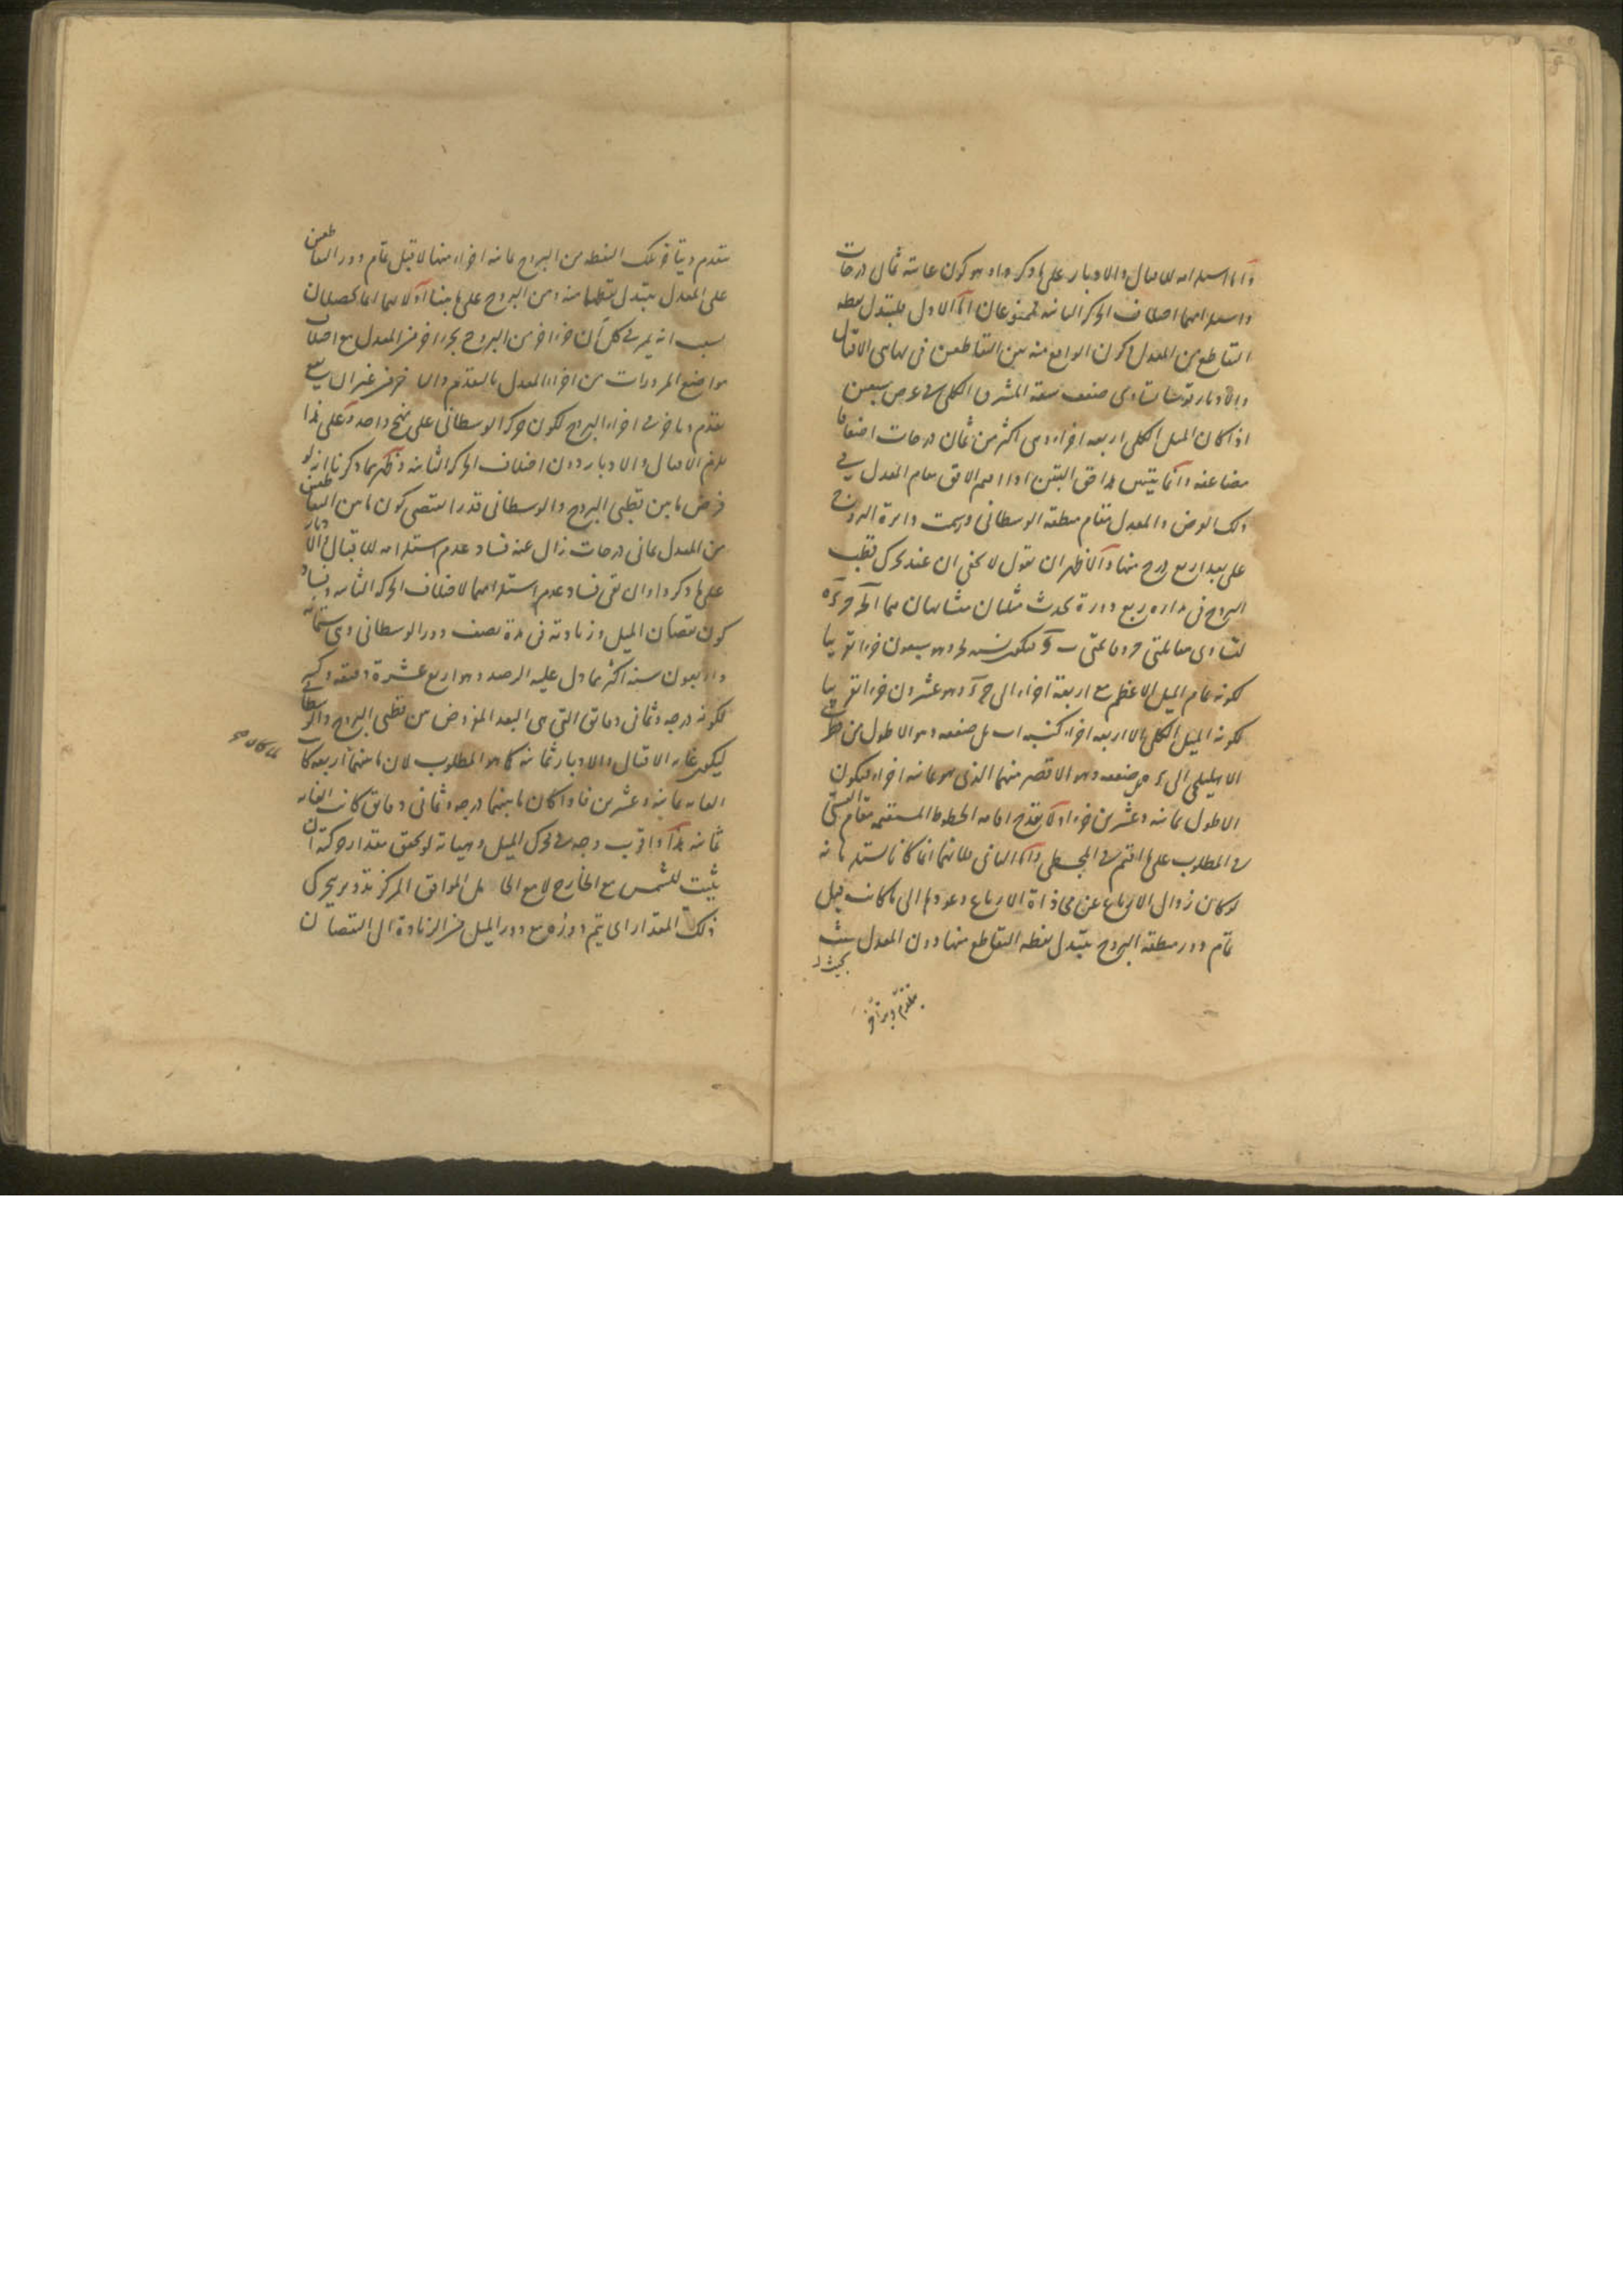 واما استلزامه للاقبال والادبار على ما ذكروا وهو كون غايته ثمان درجات
واستلزامهما اختلاف الحركة الثانية فممنوعان اما الاول فلتبدل نقطة
التقاطع من المعدل لكون الواقع منه بين التقاطعين في نهايتي الاقبال
والادبار قوسا تساوي ضعف سعة المشرق الكلي في عرض سبعين
اذا كان الميل الكلي اربعة اجزاء وهي اكثر من ثمان درجات اضعافا
مضاعفة وانما يتبين هذا حق التبين اذا اقيم الافق مقام المعدل في
ذلك العرض والمعدل مقام منطقة الوسطاني ورسمت دائرة البروج
على بعد اربع درج منها والاظهر ان نقول لا يخفى ان عند تحرك قطب
البروج في مداره ربع دورة يحدث مثلثان متشابهان هما
لتساوي مقابلتي وقائمتي فيكون نسبة وهو سبعون جزءا تقريبا
لكونه تمام الميل الاعظم مع اربعة اجزاء الى وهو عشرون جزءا تقريبا
لكونه الميل الكلي الا اربعة اجزاء كنسبة بل ضعفه وهو الاطول من
الاهليلجي الى ضعفه وهو الاقصر منهما الذي هو ثمانية اجزاء فيكون
الاطول ثمانية وعشرين جزءا ولا يقدح اقامة الخطوط المستقيمة مقام القسي
في المطلوب على ما اقيم في المجسطي واما الثاني فلانهما انما كانا يستلزمانه
لو كان زوال الارباع عن محاذاة الارباع وعودها الى ما كانت قبل
تمام دور منطقة البروج بتبدل نقطة التقاطع منها دون المعدل
بحيث
يتقدم ويتاخر
يتقدم ويتاخر تلك النقطة من البروج ثمانية اجزاء منها لا قبل تمام دور التقاطعين
على المعدل بتبدل نقطها منه ومن البروج على ما بينا اولا فهما انما يحصلان
بسبب انه يمر في كل آن جزء اخر من البروج بجزء اخر من المعدل مع اختلاف
مواضع المرورات من اجزاء المعدل بالتقدم والتاخر من غير ان يقع
تقدم وتاخر في اجزاء البروج لكون حركة الوسطاني على نهج واحد وعلى هذا
يلزم الاقبال والادبار دون اختلاف الحركة الثانية وظهر مما ذكرنا انه لو
فرض ما بين قطبي البروج والوسطاني قدرا يقتضي كون ما بين التقاطعين
من المعدل ثماني درجات زال عنه فساد عدم استلزامه للاقبال والادبار
على ما ذكروا وان بقي فساد عدم استلزامهما لاختلاف الحركة الثانية وفساد
كون نقصان الميل وزيادته في مدة نصف دور الوسطاني وهي ستمائة
واربعون سنة اكثر مما دل عليه الرصد وهو اربع عشرة دقيقة وكسر
لكونه درجة وثماني دقائق التي هي البعد المفروض بين قطبي البروج والوسطاني
ليكون غاية الاقبال والادبار ثمانية كما هو المطلوب لان ما بينهما اربعة كانت
الغاية ثمانية وعشرين فاذا كان ما بينهما درجة وثماني دقائق كانت الغاية
ثمانية هذا واقرب وجه في تحرك الميل وجهاته لو تحقق مقدار حركته ان
يثبت للشمس مع الخارج لا مع الحامل الموافق المركز تدوير يتحرك
ذلك المقدار اي يتم دوره مع دور الميل من الزيادة الى النقصان